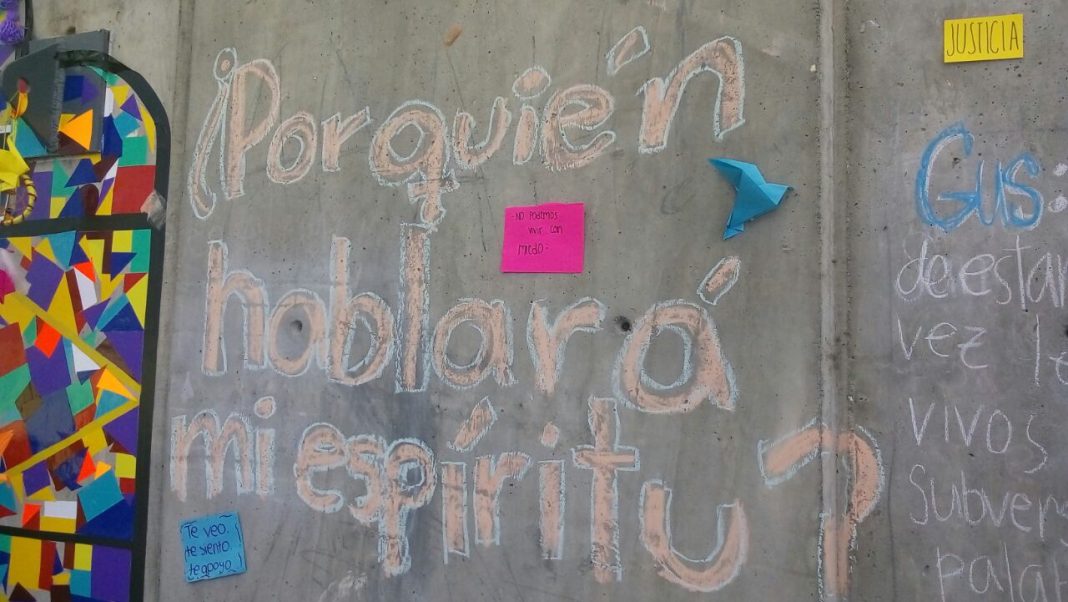 JUSTICIA
¡Porquién
hablará
mi espíritu?
NO PODEMOS
vivir con
miedo.
Te veo.
te siento.
te apoyo.
GUS:
de estar
vez
vivos